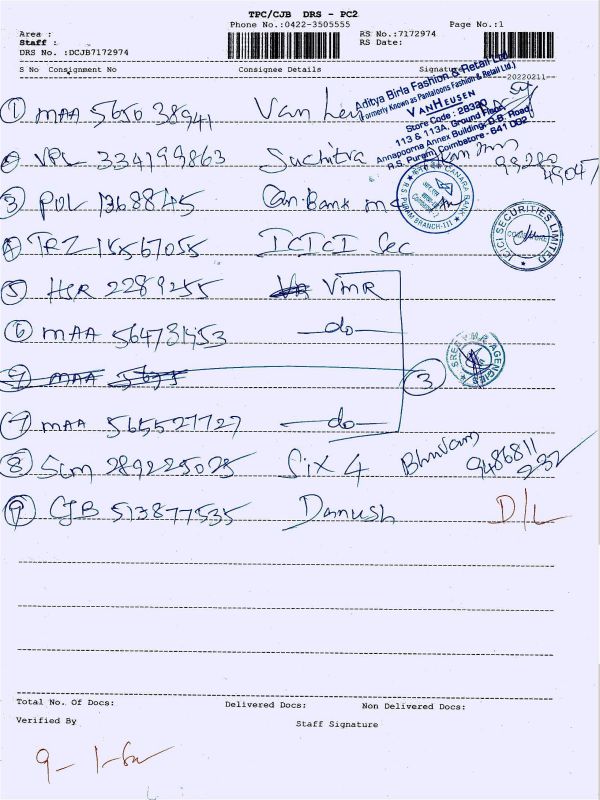 TPC/CJB DRS - PC2
Phone No.:0422-3505555 Page No.:1
Area : RS No.:7172974
Staff : RS Date:
DRS No. :DCJB7172974
S No Consignment No Consignee Details Signature
20220211
Aditya Birla Fashion & Retail Ltd
(Formerly Known as Pantaloons Fashion & Retail Ltd.)
VANHEUSEN
Store Code : 28390
113 & 113A, Ground Floor
Annapoorna Annex Building, D.B. Road,
R.S. Puram, Coimbatore - 641 002
1 MAA 565038941 Van
2 VPL 334199863 Suchitra 99280 49047
3 POL 1368845 Can. Bank
CANARA BANK
R S PURAM BRANCH-III
4 TRZ 15567055 ICICI Sec
ICICI SECURITIES LIMITED
COIMBATORE
5 HSR 2289255 VMR
6 MAA 564731953 -do-
7 MAA
3
AGENCIES
7 MAA 565527727 -do-
8 Scm 289225025 Six 4 Bhuvan 9486811 232
9 CJB 513877535 Danush D/L
Total No. Of Docs: Delivered Docs: Non Delivered Docs:
Verified By Staff Signature
9-1-